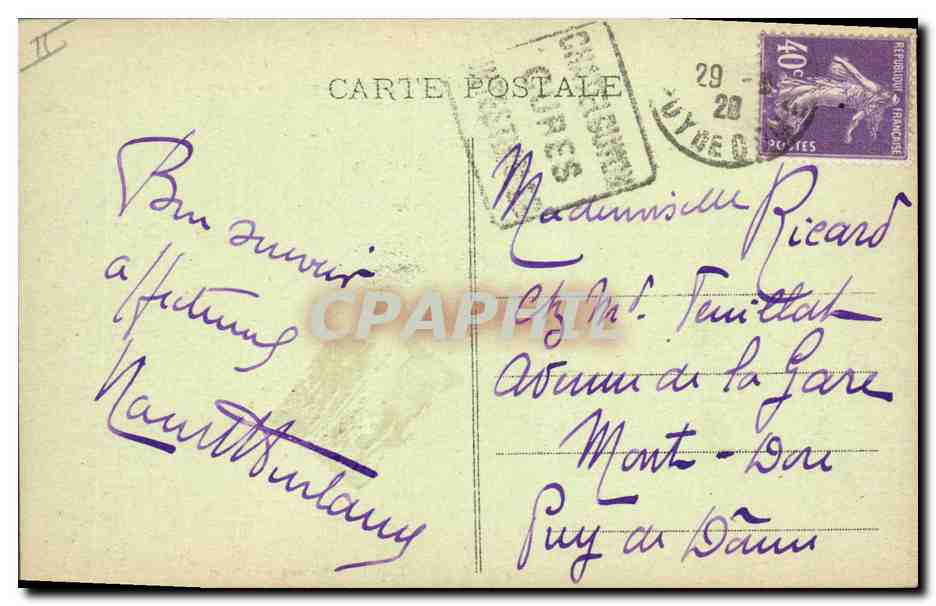 CARTE POSTALE
CHATELGUYON
CURES
INTESTIN
29
28
PUY DE DOME
40c
REPUBLIQUE FRANCAISE
POSTES
Bon souvenir
affectueux
Mademoiselle Ricard
Chz Mr. Feuillat
Avenue de la Gare
Mont-Dore
Puy de Dôme
CPAPHIL
II